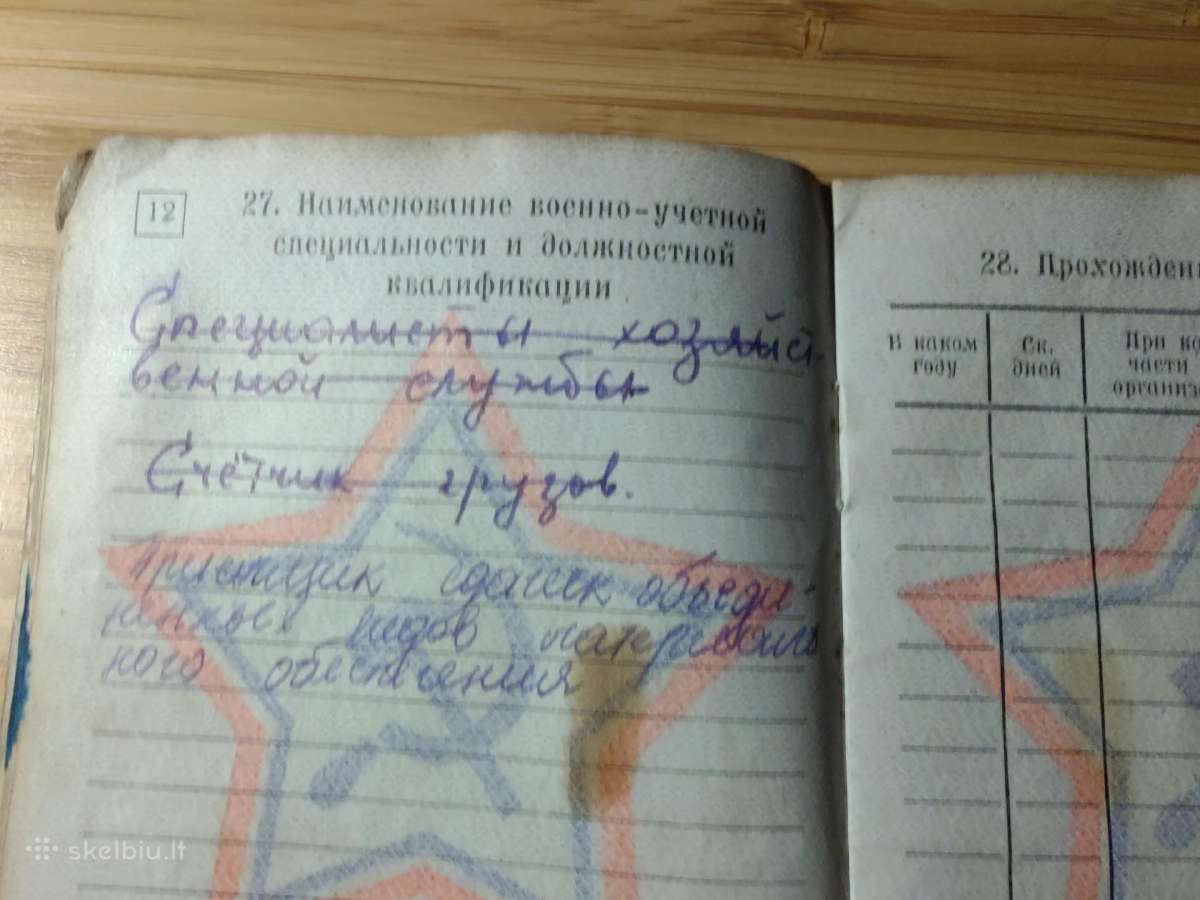 12
27. Наименование военно-учетной
специальности и должностной
квалификации
Специалисты хозяйст-
венной службы
Счётчик грузов.
объеди-
ненных видов материаль
ного обеспечения
28. Прохожден
В каком
году
Ск.
дней
При ко
части
организ
skelbiu.lt